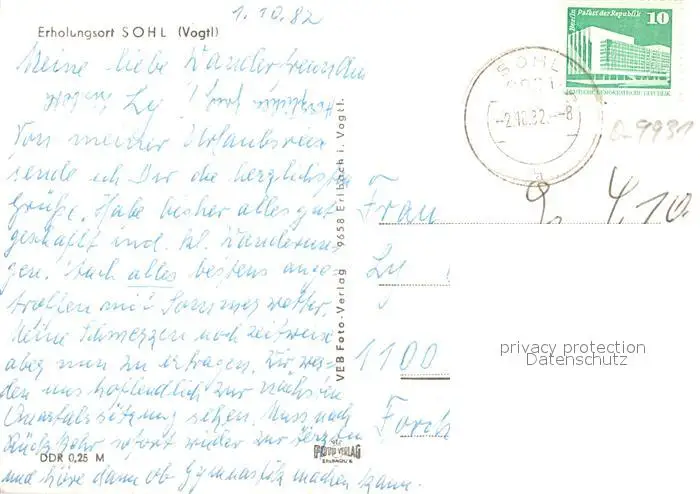 1.10.82
Erholungsort SOHL (Vogtl)
Meine liebe Wanderfreundin
Ly !
Von meiner Urlaubsrei
sende ich Dir die herzlichsten
Grüße. Habe bisher alles gut
geschafft incl. kl. Wanderun-
gen. Auch alles bestens ange-
troffen mit Sommerwetter.
Meine Schmerzen noch zeitweise
aber nun zu ertragen. Wir wer-
den uns hoffentlich zur nächsten
Quartalssitzung sehen. Muss nach
Rückkehr sofort wieder zur Ärztin
und höre dann ob Gymnastik machen kann.
DDR 0,25 M
VEB Foto-Verlag 9658 Erlbach i. Vogtl.
FOTO VERLAG
ERLBACH
Berlin Palast der Republik
10
DEUTSCHE DEMOKRATISCHE REPUBLIK
SOHL
-2.10.82.-8
a
Q-9931
4.10.
Frau
Ly
1100
Forch
privacy protection
Datenschutz